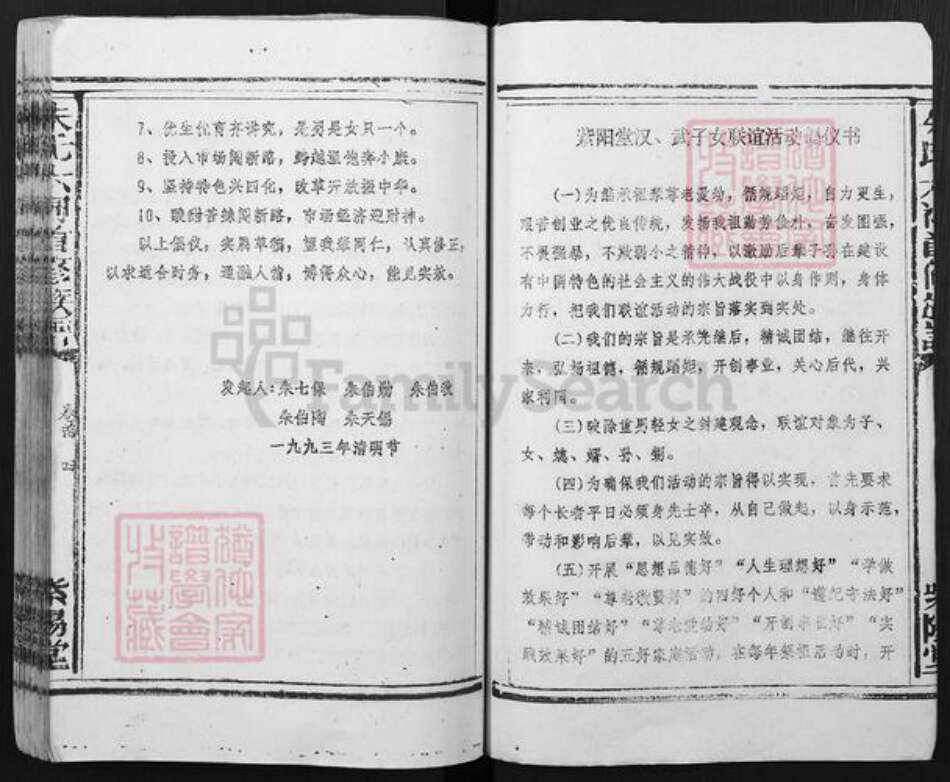 7、优生优育齐讲究，是男是女只一个。
8、投入市场闯新路，跨越温饱奔小康。
9、坚持特色兴四化，改革开放振中华。
10、艰耐苦练闯新路，市场经济迎财神。
以上倡仪，实属草稿，望我辈同仁，认真修正，
以求适合时务，通融人情，博得众心，能见实效。
发起人：朱七保 朱伯勋 朱伯
朱伯陶 朱天锡
一九九三年清明节
紫阳堂
紫阳堂汉、武子女联谊活动倡仪书
(一)为继承祖宗尊老爱幼，循规蹈矩，自力更生，
艰苦创业之优良传统，发扬我祖勤劳俭朴，奋发图强，
不畏强暴，不欺弱小之精神，以激励后辈子孙在建设
有中国特色的社会主义的伟大战役中以身作则，身体
力行，把我们联谊活动的宗旨落实到实处。
(二)我们的宗旨是承先继后，精诚团结，继往开
来，弘扬祖德，循规蹈矩，开创事业，关心后代，兴
家利国。
(三)破除重男轻女之封建观念，联谊对象为子、
女、媳、婿、孙、
(四)为确保我们活动的宗旨得以实现，首先要求
每个长者平日必须身先士卒，从自己做起，以身示范，
带动和影响后辈，以见实效。
(五)开展“思想品德好”“人生理想好”“学做
效果好”“尊老敬贤好”的四好个人和“遵纪守法好”
“精诚团结好”“尊老爱幼好”“开创事业好”“实
践效果好”的五好家庭活动，在每年祭祖活动时，开
紫阳堂
FamilySearch